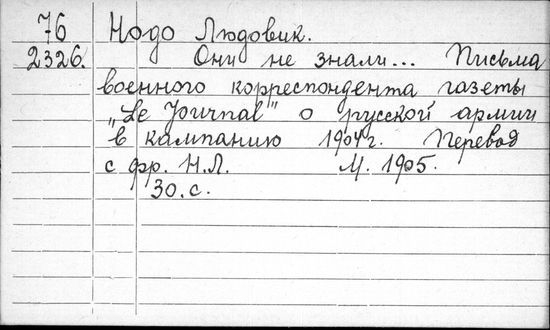 76 Нодо Людовик.
2326. Они не знали... Письма
военного корреспондента газеты
„Le Journal" о русской армии
в кампанию 1904г. Перевод
с фр. Н.Л. М. 1905.
30.с.